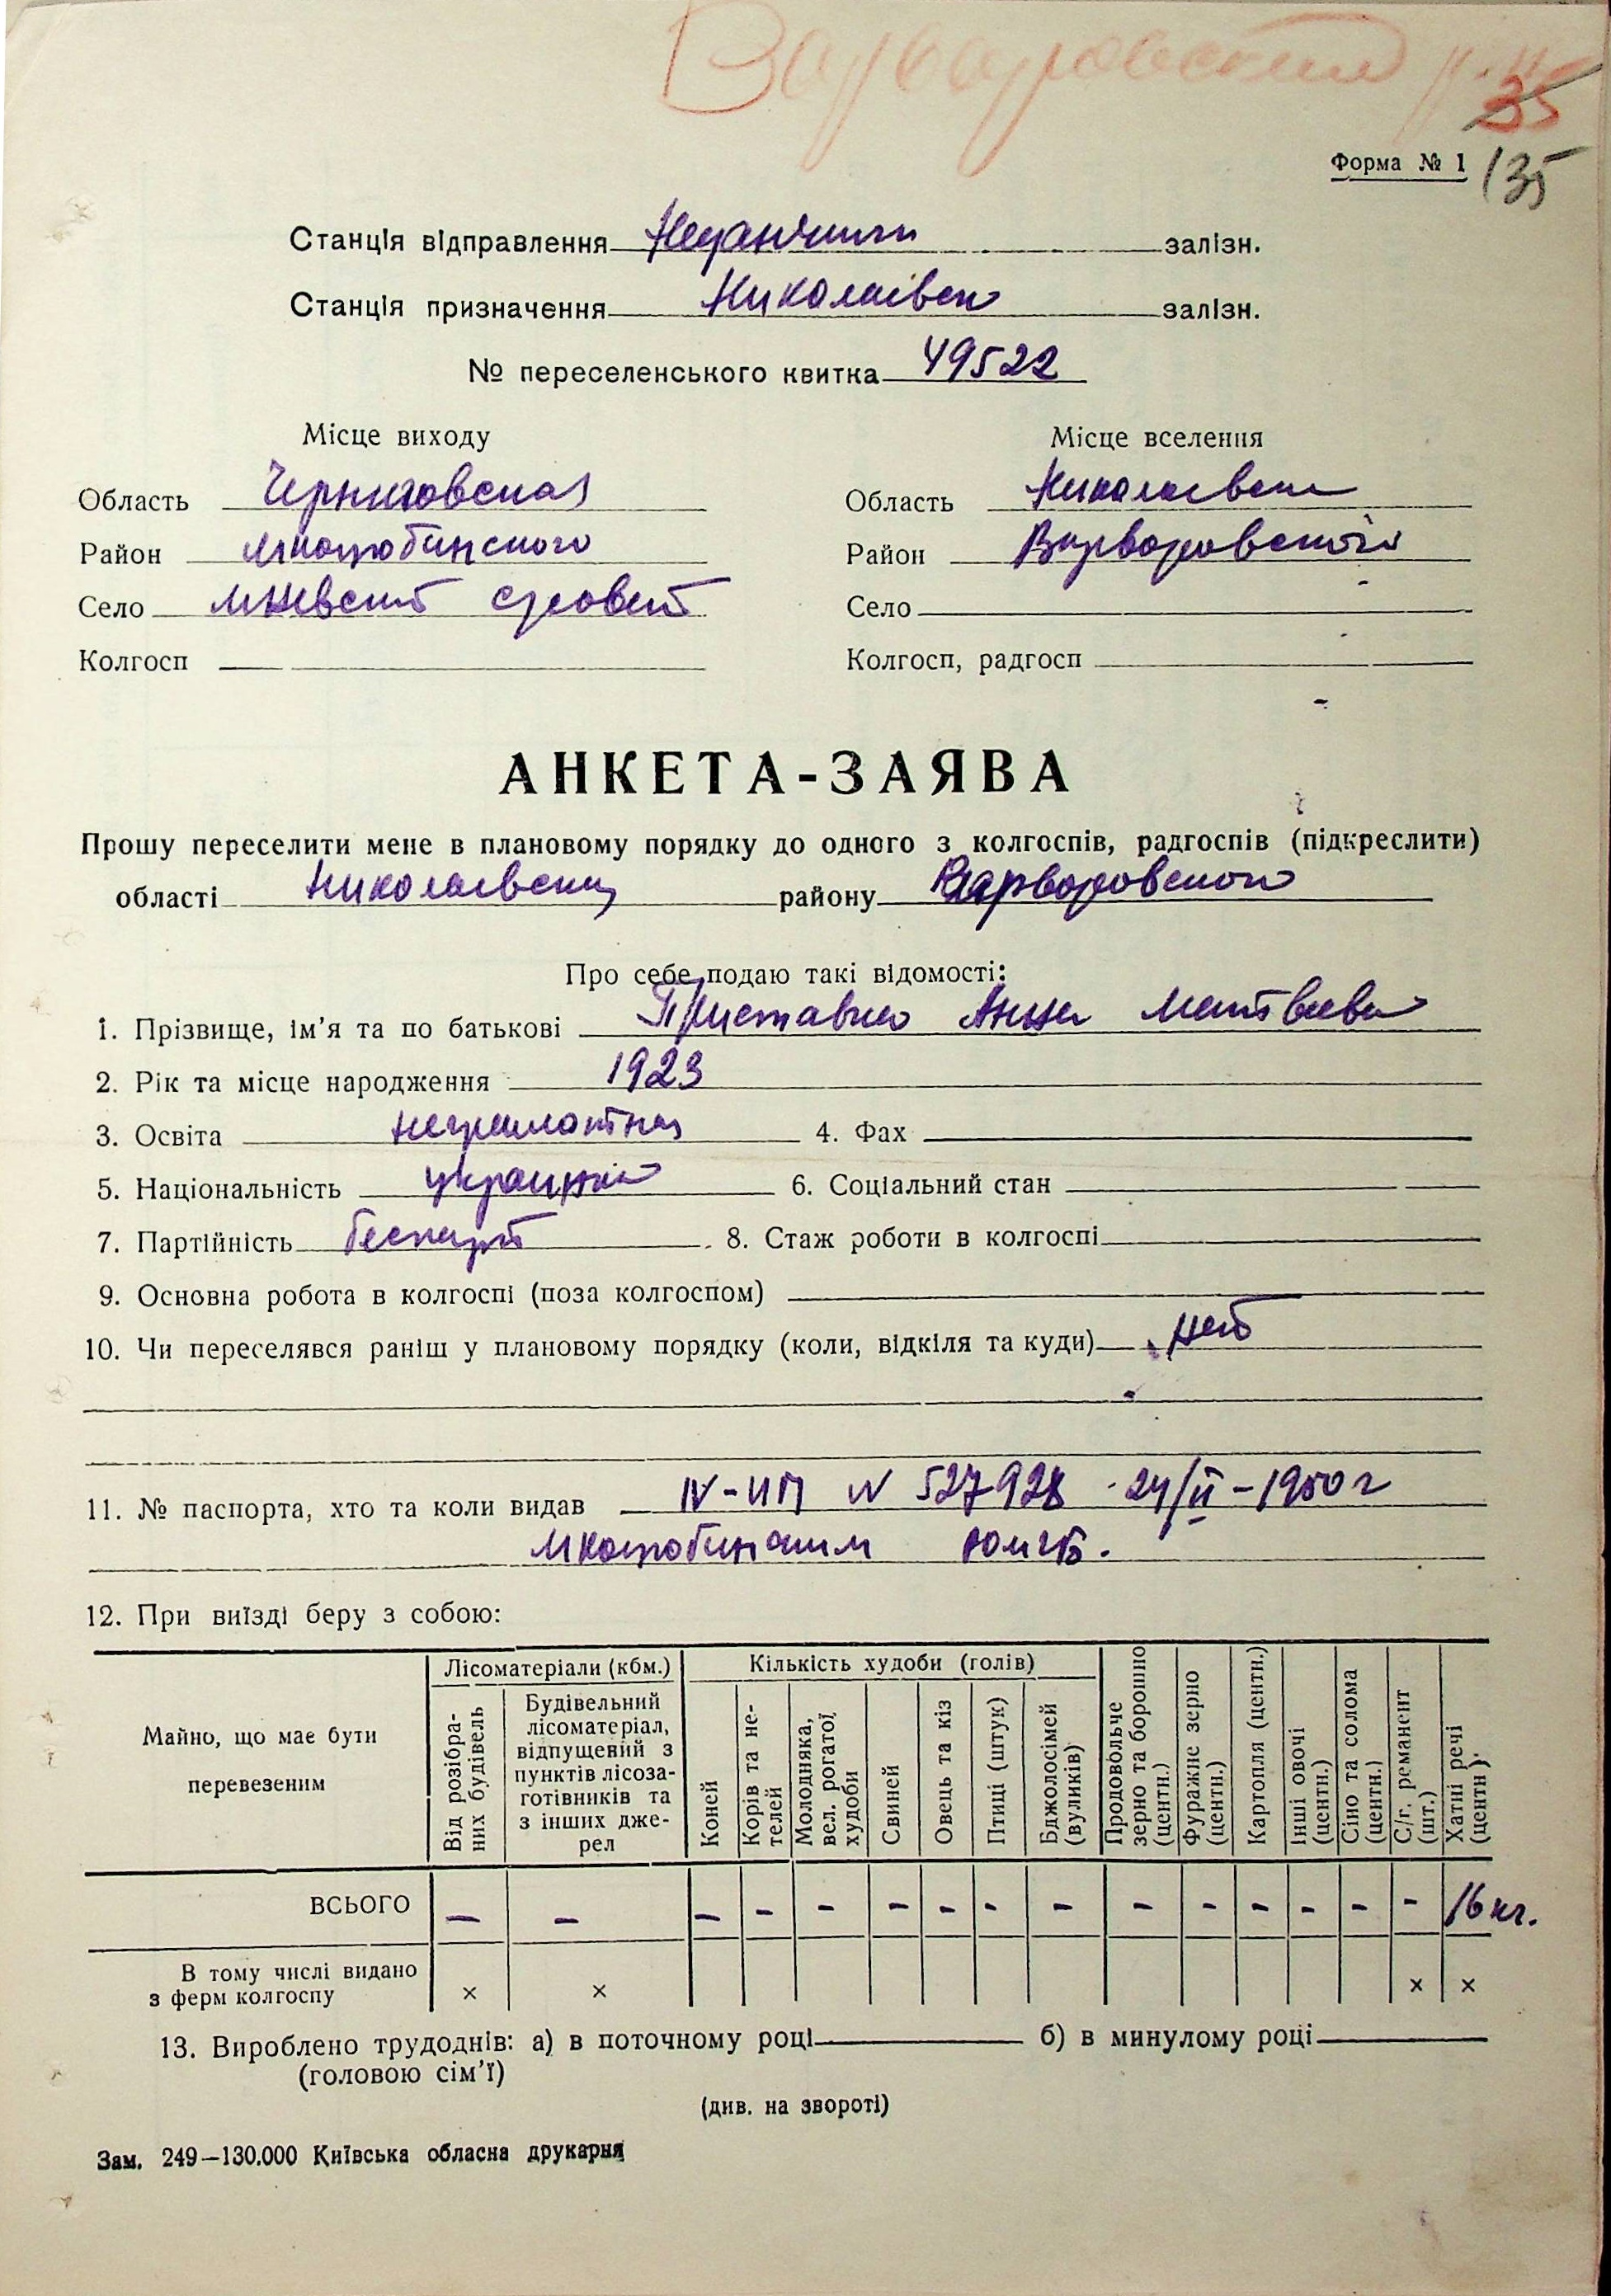 Варваровский р-н
35
Форма № 1 135
Станція відправлення Неданчичи залізн.
Станція призначення Николаевск залізн.
№ переселенського квитка 49522
Місце виходу Місце вселення
Область Черниговская Область Николаевск
Район М.коцюбинского Район Варваровского
Село Мневский с/совет Село
Колгосп Колгосп, радгосп
АНКЕТА-ЗАЯВА
Прошу переселити мене в плановому порядку до одного з колгоспів, радгоспів (підкреслити)
області Николаевской району Варваровского
Про себе подаю такі відомості:
1. Прізвище, ім’я та по батькові Приставко Анна Матвеевна
2. Рік та місце народження 1923
3. Освіта неграмотная 4. Фах
5. Національність украинка 6. Соціальний стан
7. Партійність беспарт 8. Стаж роботи в колгоспі
9. Основна робота в колгоспі (поза колгоспом)
10. Чи переселявся раніш у плановому порядку (коли, відкіля та куди) нет
11. № паспорта, хто та коли видав IV-ИП N 527928 24/II-1950 г
М коцюбинским
12. При виїзді беру з собою:
Майно, що має бути перевезеним
Лісоматеріали (кбм.)
Від розібраних будівель
Будівельний лісоматеріал, відпущений з пунктів лісозаготівників та з інших джерел
Кількість худоби (голів)
Коней
Корів та нетелей
Молодняка, вел. рогатої худоби
Свиней
Овець та кіз
Птиці (штук)
Бджолосімей (вуликів)
Продовольче зерно та борошно (центн.)
Фуражне зерно (центн.)
Картопля (центн.)
Інші овочі (центн.)
Сіно та солома (центн.)
С/г. реманент (шт.)
Хатні речі (центн.)
ВСЬОГО — — — - - - - - - - - - - - - 16 кг.
В тому числі видано
з ферм колгоспу × × × ×
13. Вироблено трудоднів: а) в поточному році б) в минулому році
(головою сім’ї)
(див. на звороті)
Зам. 249—130.000 Київська обласна друкарня